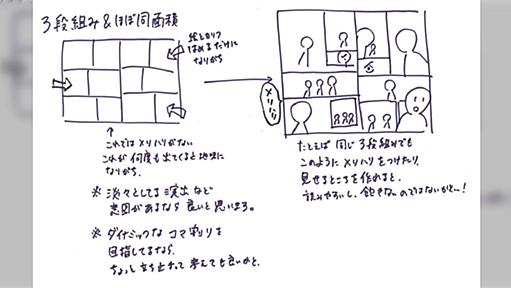 3段組み&ほぼ同面積
絵とセリフ
はめるだけに
なりがち
↑
これではメリハリがない
これが何度も出てくると地味に
なりがち。
※ 淡々としてる演出など
意図があるなら良いと思います。
※ ダイナミックなコマ割りを
目指してるなら、
ちょっと立ち止まって考えても良いかと。
メリハリ
たとえば同じ3段組みでも
このようにメリハリをつけたり、
見せるところを作れると、
読みやすいし、飽きないのではないかと!